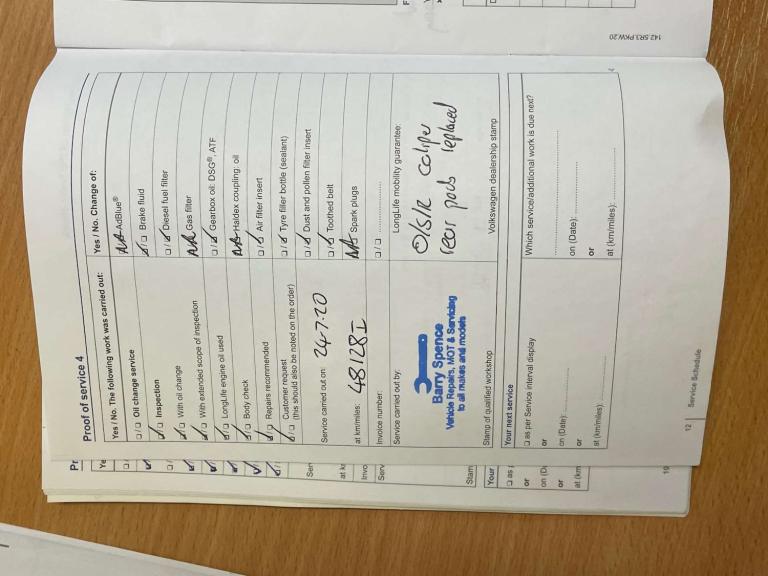 Proof of service 4
Yes / No. The following work was carried out:
Oil change service
Inspection
With oil change
With extended scope of inspection
LongLife engine oil used
Body check
Repairs recommended
Customer request
(this should also be noted on the order)
Service carried out on: 24-7-20
at km/miles: 48128
Invoice number:
Service carried out by:
Barry Spence
Vehicle Repairs, MOT & Servicing
to all makes and models
Stamp of qualified workshop
Yes / No. Change of:
NA AdBlue®
Brake fluid
Diesel fuel filter
NA Gas filter
Gearbox oil: DSG®, ATF
NA Haldex coupling: oil
Air filter insert
Tyre filler bottle (sealant)
Dust and pollen filter insert
Toothed belt
NA Spark plugs
LongLife mobility guarantee:
O/S/R caliper
rear pads replaced
Volkswagen dealership stamp
Your next service
as per Service interval display
or
on (Date):
or
at (km/miles):
Which service/additional work is due next?
on (Date):
or
at (km/miles):
12 | Service Schedule
142.5R3.PKW.20
Pr
Ye
Ser
at k
Invo
Serv
Stam
Your
as
or
on (D
or
at (km